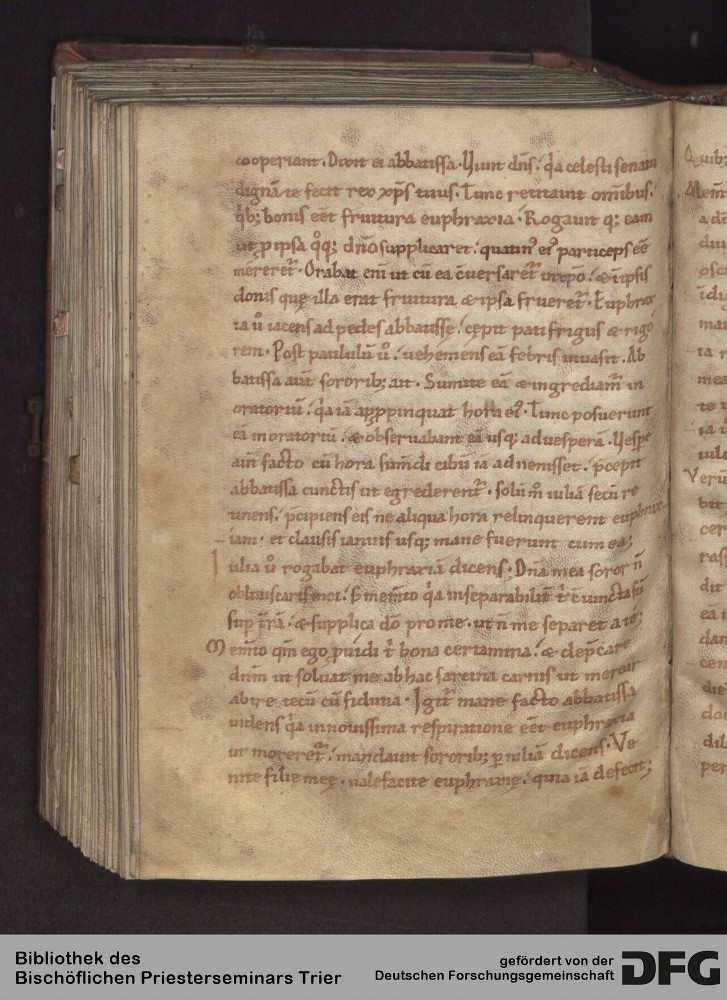 cooperiant. Dixit ei abbatissa. Uiuit dñs. q̇a celesti senatu
dignā te fecit rex xp̄s tuus. Tunc retitauit omībus.
q̇b; bonis eēt fruitura euphraxia. Rogauit q; eam
ut p ipsa q̊q; dnō supplicaret. quatin9 ei9 particeps eē
mereret᷑. Orabat eni ut cū ea cuersaret᷑ & ī ipsis
donis quę illa erat fruitura & ipsa frueret᷑. Euphrax
ia ů iacens ad pedes abbatisse. cepit pati frigus & rigo
rem. Post paululū ů. uehemens eā febris inuasit. Ab
batissa aūt sororib; ait. Sumite eā & ingrediam᷑ in
oratoriū. q̇a iā appinquat hora ei9. Tunc posuerunt
eā in oratoriū. & obseruabant eā usq; ad uesperā. Uespe
aūt facto cū hora sumdi cibū iā aduenisset. pcepit
abbatissa cunctis ut egrederent᷑. solūm iuliā secū re
tinens. pcipiens eis ne aliqua hora relinquerent euphrax
iam. et clausis ianuis usq; mane fuerunt cum ea;
Iulia ů rogabat euphraxiā dicens. Dn̄a mea soror n̄
obliuiscaris mei. S; mem̄to q̇a inseparabilit᷑ t̄ cuncta sū
sup tr̄ā. & supplica dō pro me. ut n̄ me separet a te;
Mem̄to qm̄ ego puidi t̄ bona certamina. & dep̄care
dn̄m ut soluat me ab hac sarcina carnis ut merear
abire tecū cū fiducia. Igit᷑ mane facto abbatissa
uidens q̇a in nouissima respiratione eēt euphraxia
ut moreret᷑. mandauit sororib; p iuliā dicens. Ve
nite filie meę. ualefacite euphraxię. quia iā defecit;
Bibliothek des
Bischöflichen Priesterseminars Trier
gefördert von der
Deutschen Forschungsgemeinschaft
DFG